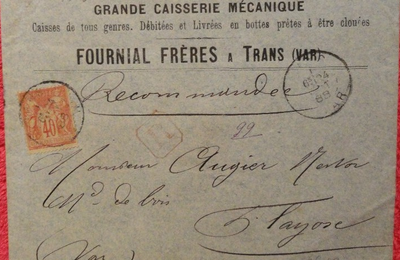 GRANDE CAISSERIE MÉCANIQUE
Caisses de tous genres. Débitées et Livrées en bottes prêtes à être clouées
FOURNIAL FRÈRES A TRANS (VAR)
Recommandée
40
R
99
Monsieur Augier Nestor
Md de bois
Flayosc
Var